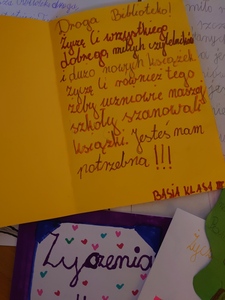 Droga Biblioteko!
Życzę Ci wszystkiego
dobrego, miłych czytelników
i dużo nowych książek
życzę Ci również tego
żeby uczniowie naszej
szkoły szanowali
książki. Jesteś nam
potrzebna !!!
BASIA KLASA III
Życzenia